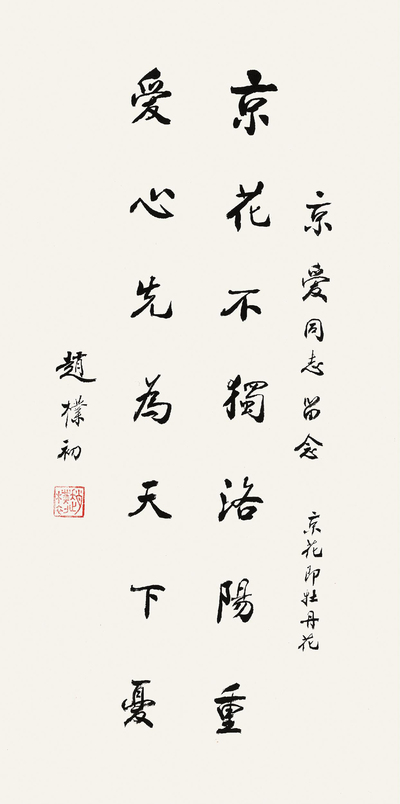 京愛同志留念　京花即牡丹花
京花不獨洛陽重
愛心先為天下憂
趙樸初
趙樸初